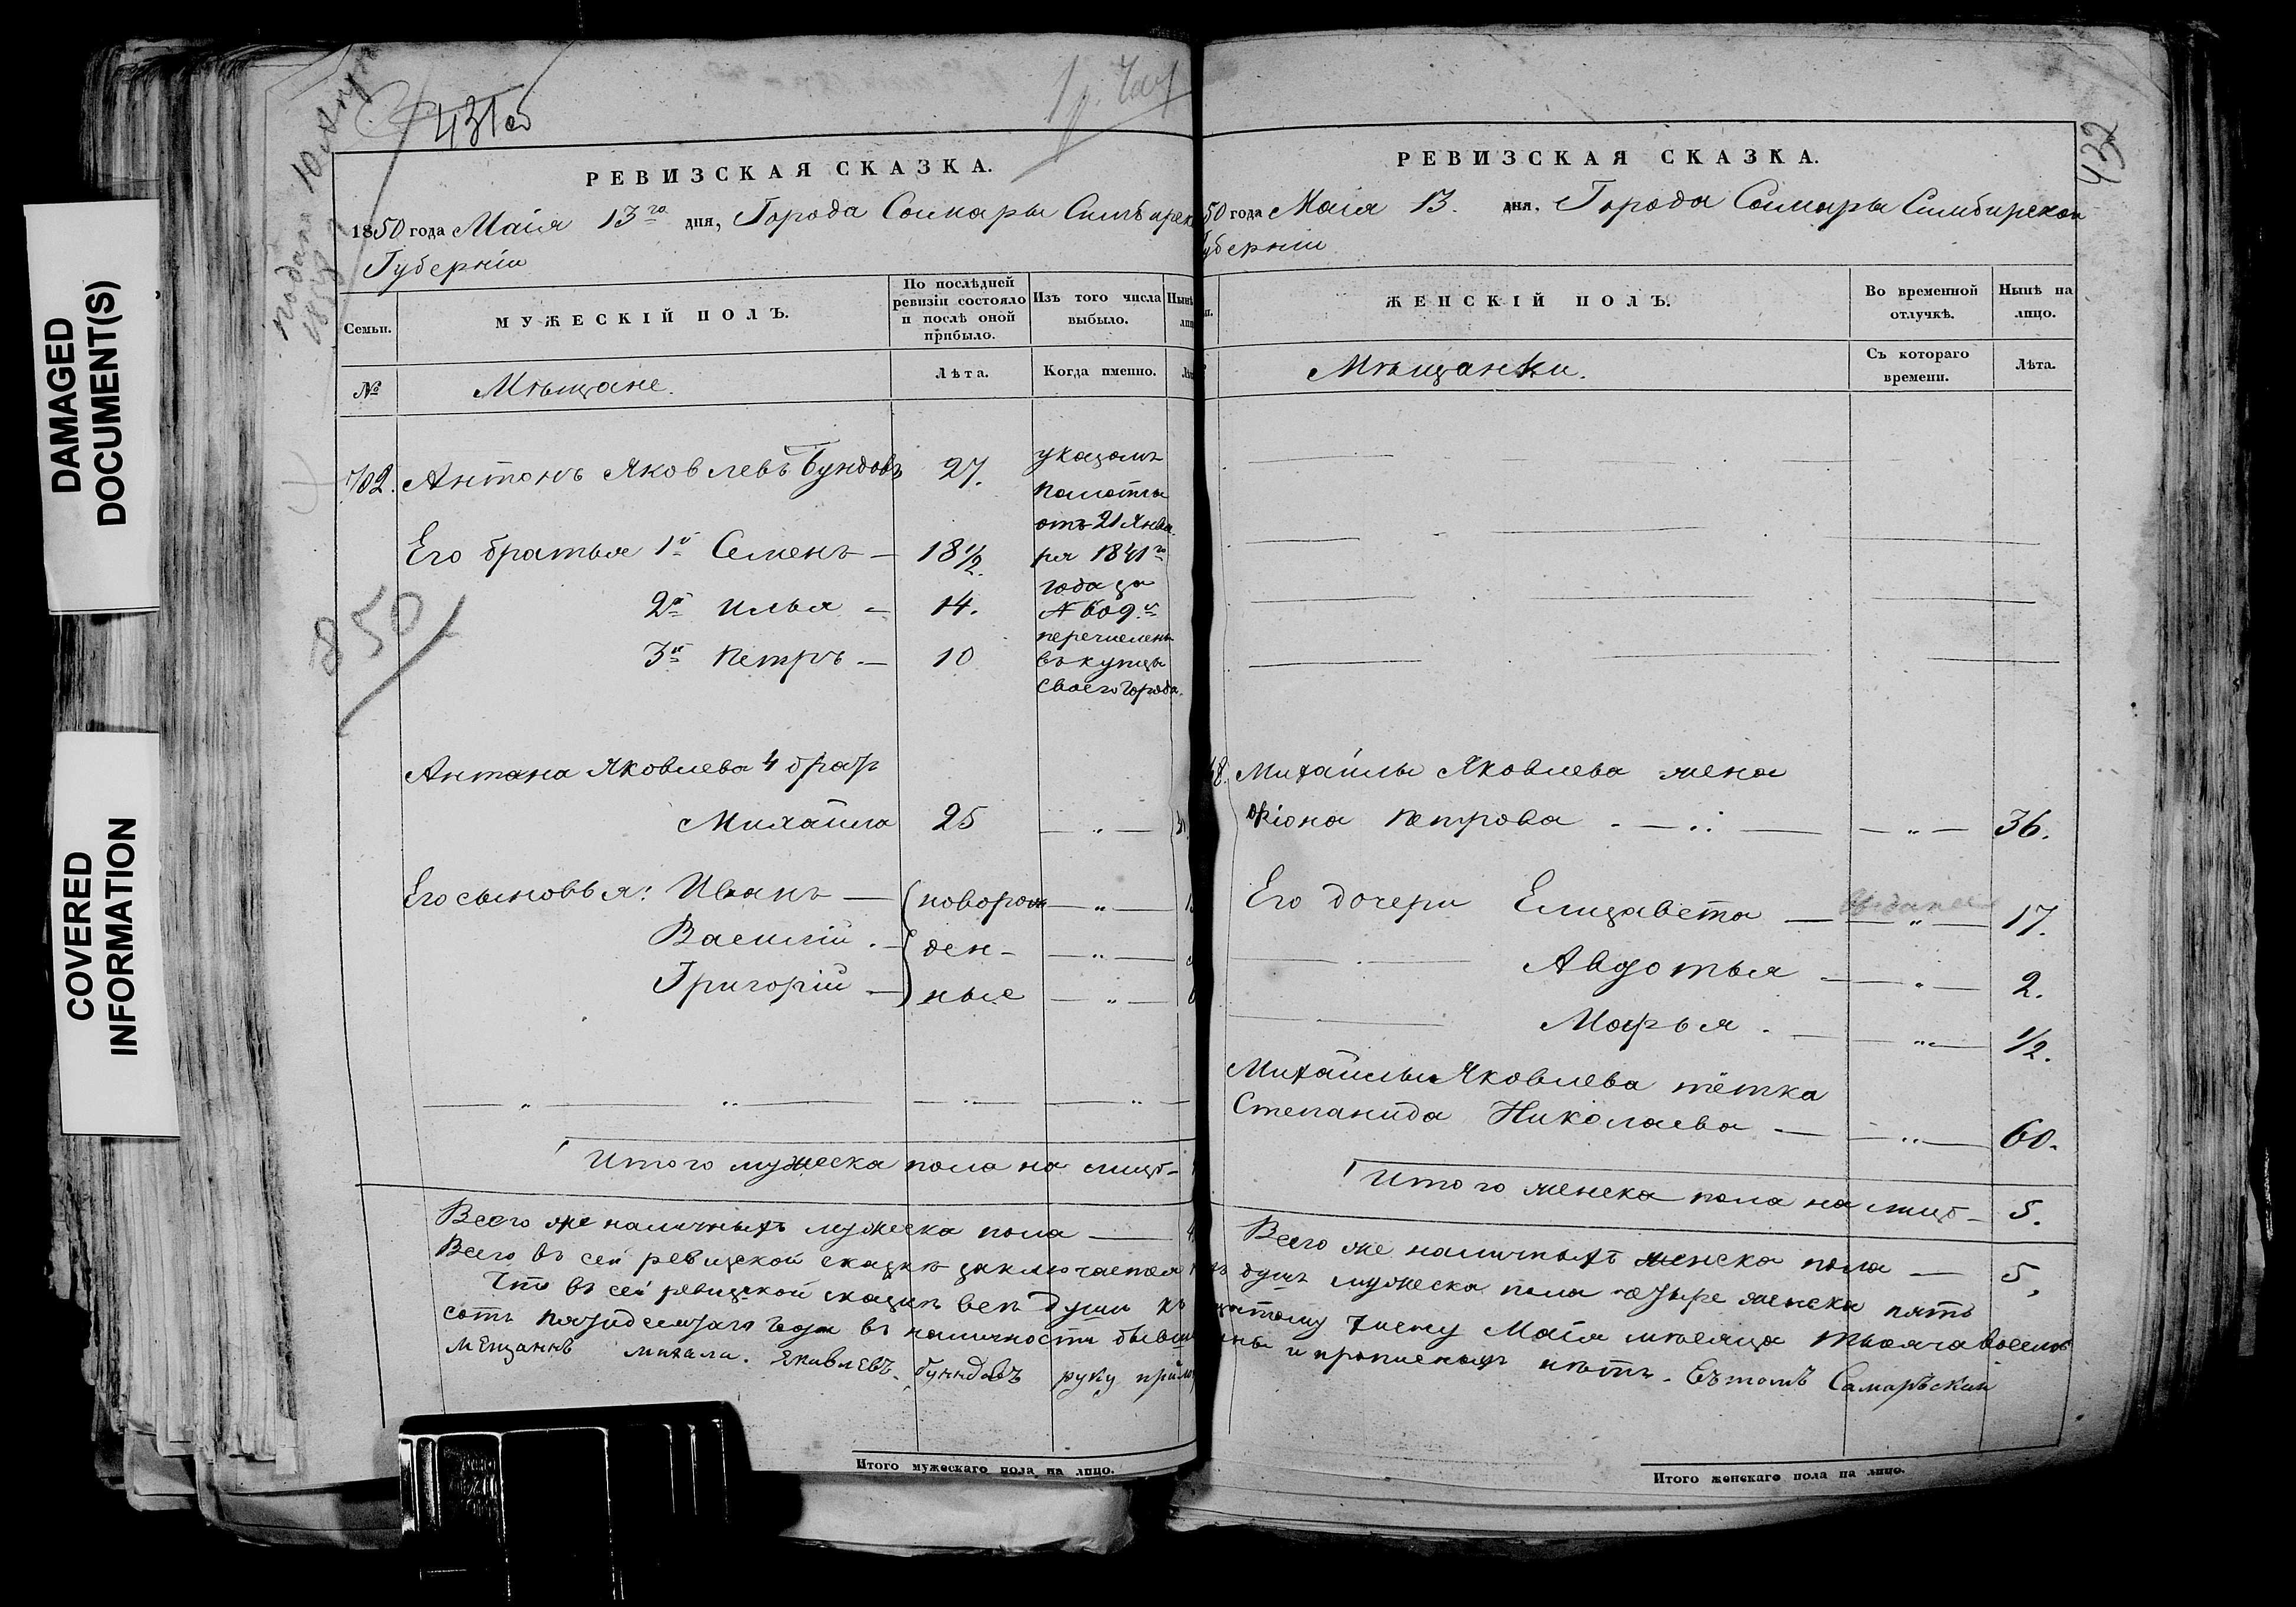 DAMAGED
DOCUMENT(S)
COVERED
INFORMATION
431об
подана 10
1858
850
РЕВИЗСКАЯ СКАЗКА.
1850 года Маія 13го дня, Города Самары Симбирск
Губерніи
Семьи.
МУЖЕСКІЙ ПОЛЪ.
По послѣдней
ревизіи состояло
и послѣ оной
прибыло.
Изъ того числа
выбыло.
Нынѣ
№
Мѣщане.
Лѣта.
Когда именно.
702. Антонъ Яковлевъ Бундовъ 27.
Его братья 1й Семенъ — 18 1/2.
2й Илья — 14.
3й Петръ — 10
указомъ
палаты
отъ 21 Янва
ря 1841го
года за
№ 609м
перечислены
въ купцы
своего города.
Антона Яковлева 4 братъ
Михайла 25 — „ —
Его сыновья: Иванъ — новорож — „ —
Василій. — ден- — „ —
Григорій — ные — „ —
Итого мужеска пола на лицо —
Всего же наличныхъ мужеска пола —
Всего въ сей ревизской сказкѣ заключается
Что въ сей ревизской сказкѣ всѣ души къ
сотъ пятидесятаго года въ наличности бывш
мещанѣнъ михаила. Яковлевъ. бундовъ руку прилож
Итого мужескаго пола на лицо.
432
РЕВИЗСКАЯ СКАЗКА.
50 года Маія 13. дня. Города Самары Симбирской
Губерніи
ЖЕНСКІЙ ПОЛЪ.
Во временной
отлучкѣ.
Нынѣ на
лицо.
Мѣщанки.
Съ котораго
времени.
Лѣта.
Михайлы Яковлева жена
Петрова — „ — 36.
Его дочери Елизавета — „ — 17.
Авдотья — „ — 2.
Марья. — „ — 1/2.
Михайлы Яковлева тётка
Степанида Николаева — „ — 60.
Итого женска пола на лицо — 5.
Всего же наличныхъ женска пола — 5.
душъ мужеска пола четыре женска пять
тому числу Маія мѣсяца тысяча восемь
и прописныхъ нѣтъ. Въ томъ Самарѣскій
Итого женскаго пола на лицо.